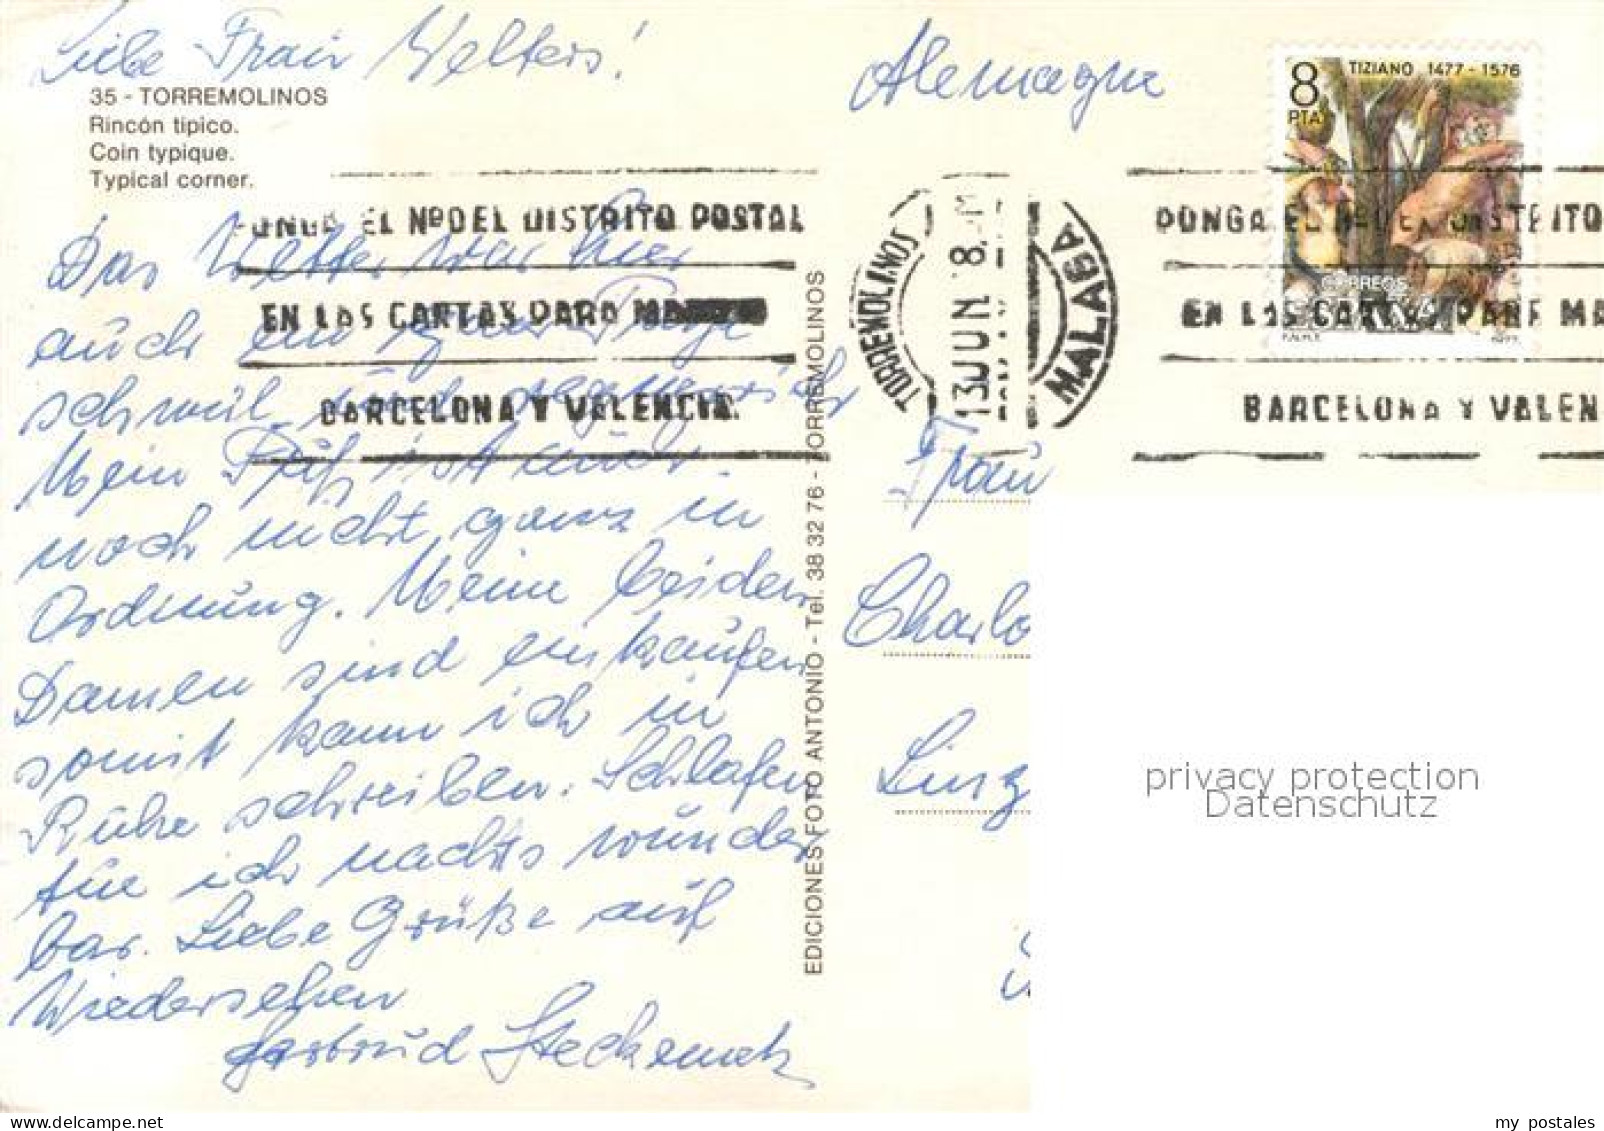 Liebe Frau Welters!
35 - TORREMOLINOS
Rincón típico.
Coin typique.
Typical corner.
Das Wetter war hier
auch ein paar Tage
schwül und regnerisch
Mein Fuß ist auch
noch nicht ganz in
Ordnung. Meine beiden
Damen sind einkaufen
somit kann ich in
Ruhe schreiben. Schlafen
tue ich nachts wunder
bar. Liebe Grüße auf
Wiedersehen
Gertrud
EDICIONES FOTO ANTONIO - Tel. 38 32 76 - TORREMOLINOS
Alemagna
8 PTA
TIZIANO 1477 - 1576
CORREOS
F.N.M.T. 1977
PONGA EL Nº DEL DISTRITO POSTAL
EN LAS CARTAS PARA MADRID
BARCELONA Y VALENCIA.
TORREMOLINOS
13 JUN. 78
MALAGA
PONGA EL Nº DEL DISTRITO
EN LAS CARTAS PARA MA
BARCELONA Y VALEN
Frau
Charlo
Linz
privacy protection
Datenschutz
my postales